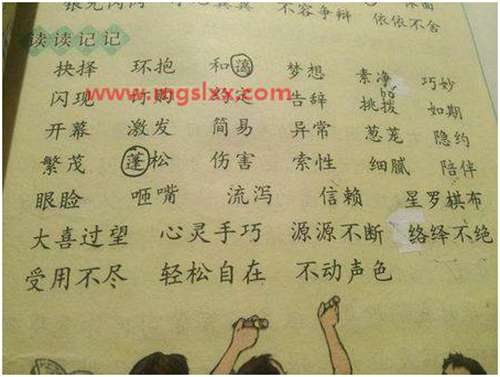 不容争辩 依依不舍
读读记记
抉择 环抱 和 梦想 素净 巧妙
闪现 约定 告辞 挑拨 如期
开幕 激发 简易 异常 葱茏 隐约
繁茂 蓬松 伤害 索性 细腻 陪伴
眼睑 咂嘴 流泻 信赖 星罗棋布
大喜过望 心灵手巧 源源不断 络绎不绝
受用不尽 轻松自在 不动声色